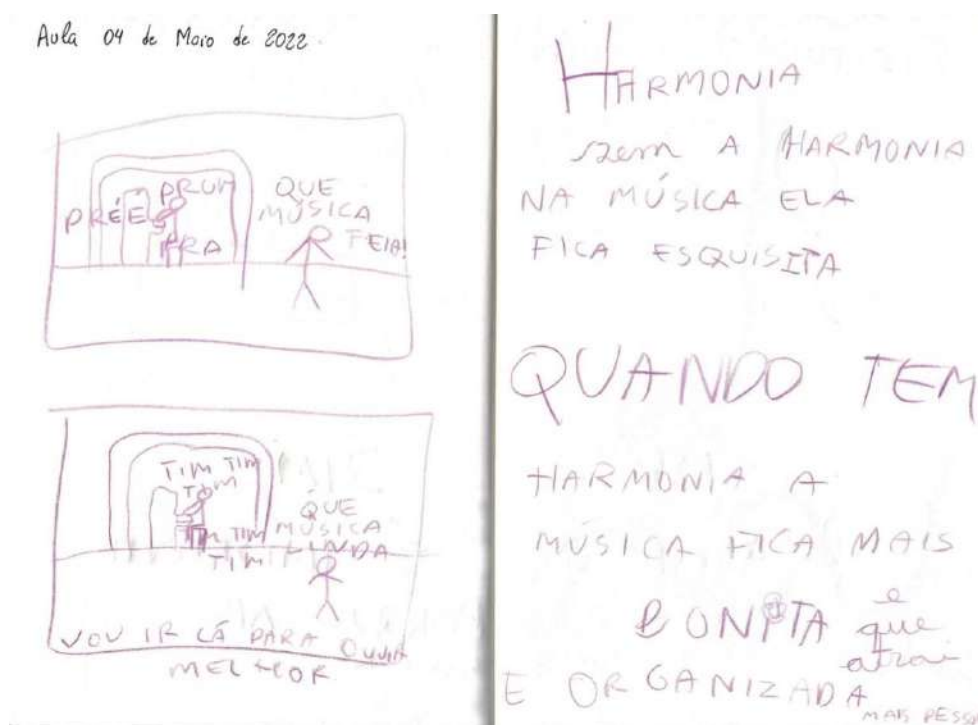 Aula 04 de Maio de 2022.
PRUM
PRÉÉ
PRA
QUE
MÚSICA
FEIA!
TIM TIM
TIM
TIM TIM
TIM
QUE
MÚSICA
LINDA
VOU IR LÁ PARA OUVIR
MELHOR
HARMONIA
sem A HARMONIA
NA MÚSICA ELA
FICA ESQUISITA
QUANDO TEM
HARMONIA A
MÚSICA FICA MAIS
BONITA e
que
atrai
E ORGANIZADA
MAIS